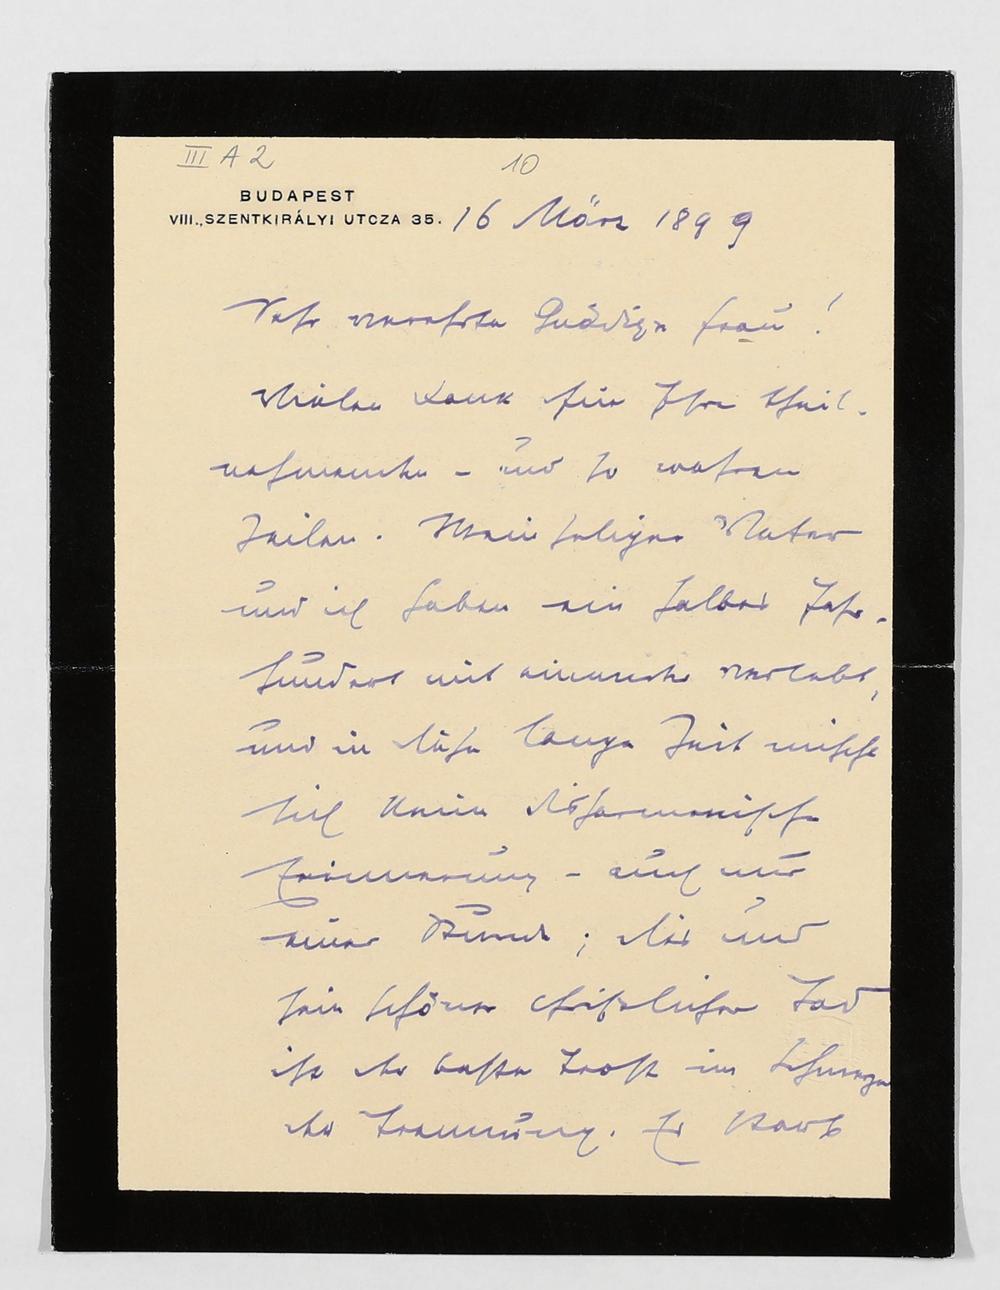 III A 2
10
BUDAPEST
VIII., SZENTKIRÁLYI UTCZA 35.
16 März 1899
Sehr verehrte Gnädige Frau!
Vielen Dank für Ihre theil-
nehmenden - und so wahren
Zeilen. Mein seliger Vater
und ich haben ein halbes Jahr-
hundert mit einander verlebt,
und in dieser langen Zeit mischt
sich keine disharmonische
Erinnerung - auch nur
einer Stunde; dies und
sein schöner christlicher Tod
ist der beste Trost im Schmerze
der Trennung. Er starb